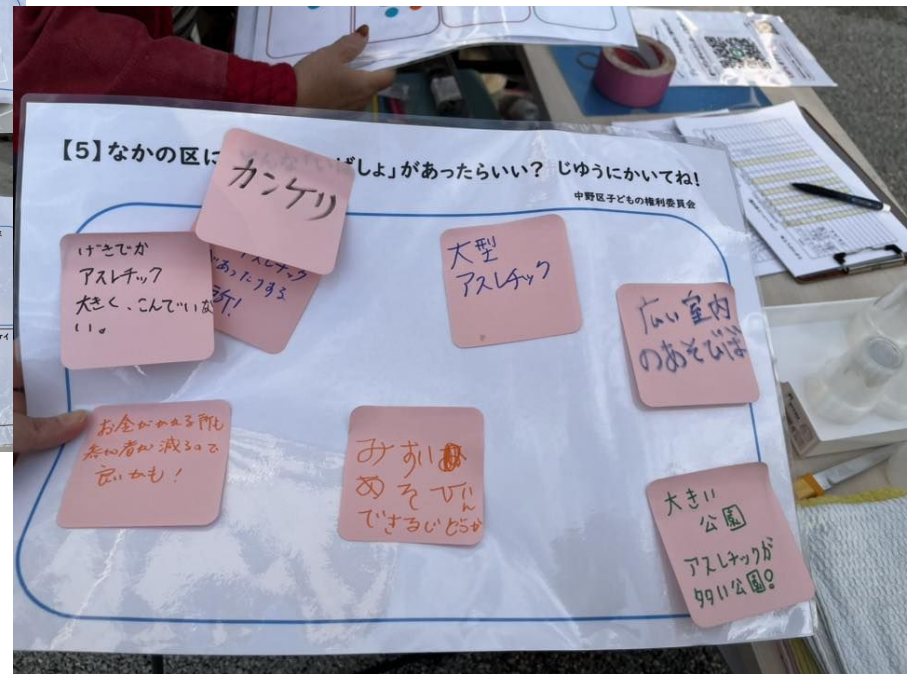 【5】なかの区に ばしょ」があったらいい？ じゆうにかいてね!
中野区子どもの権利委員会
カンケリ
げきでか
アスレチック
大きく、こんでいな
い。
アスレチック
があったする
ケ!
大型
アスレチック
広い室内
のあそびば
お金がかかる所も
参加者が減るので
良いかも!
みずい
あそび
できるじどうかん
大きい
公園
アスレチックが
多い公園!